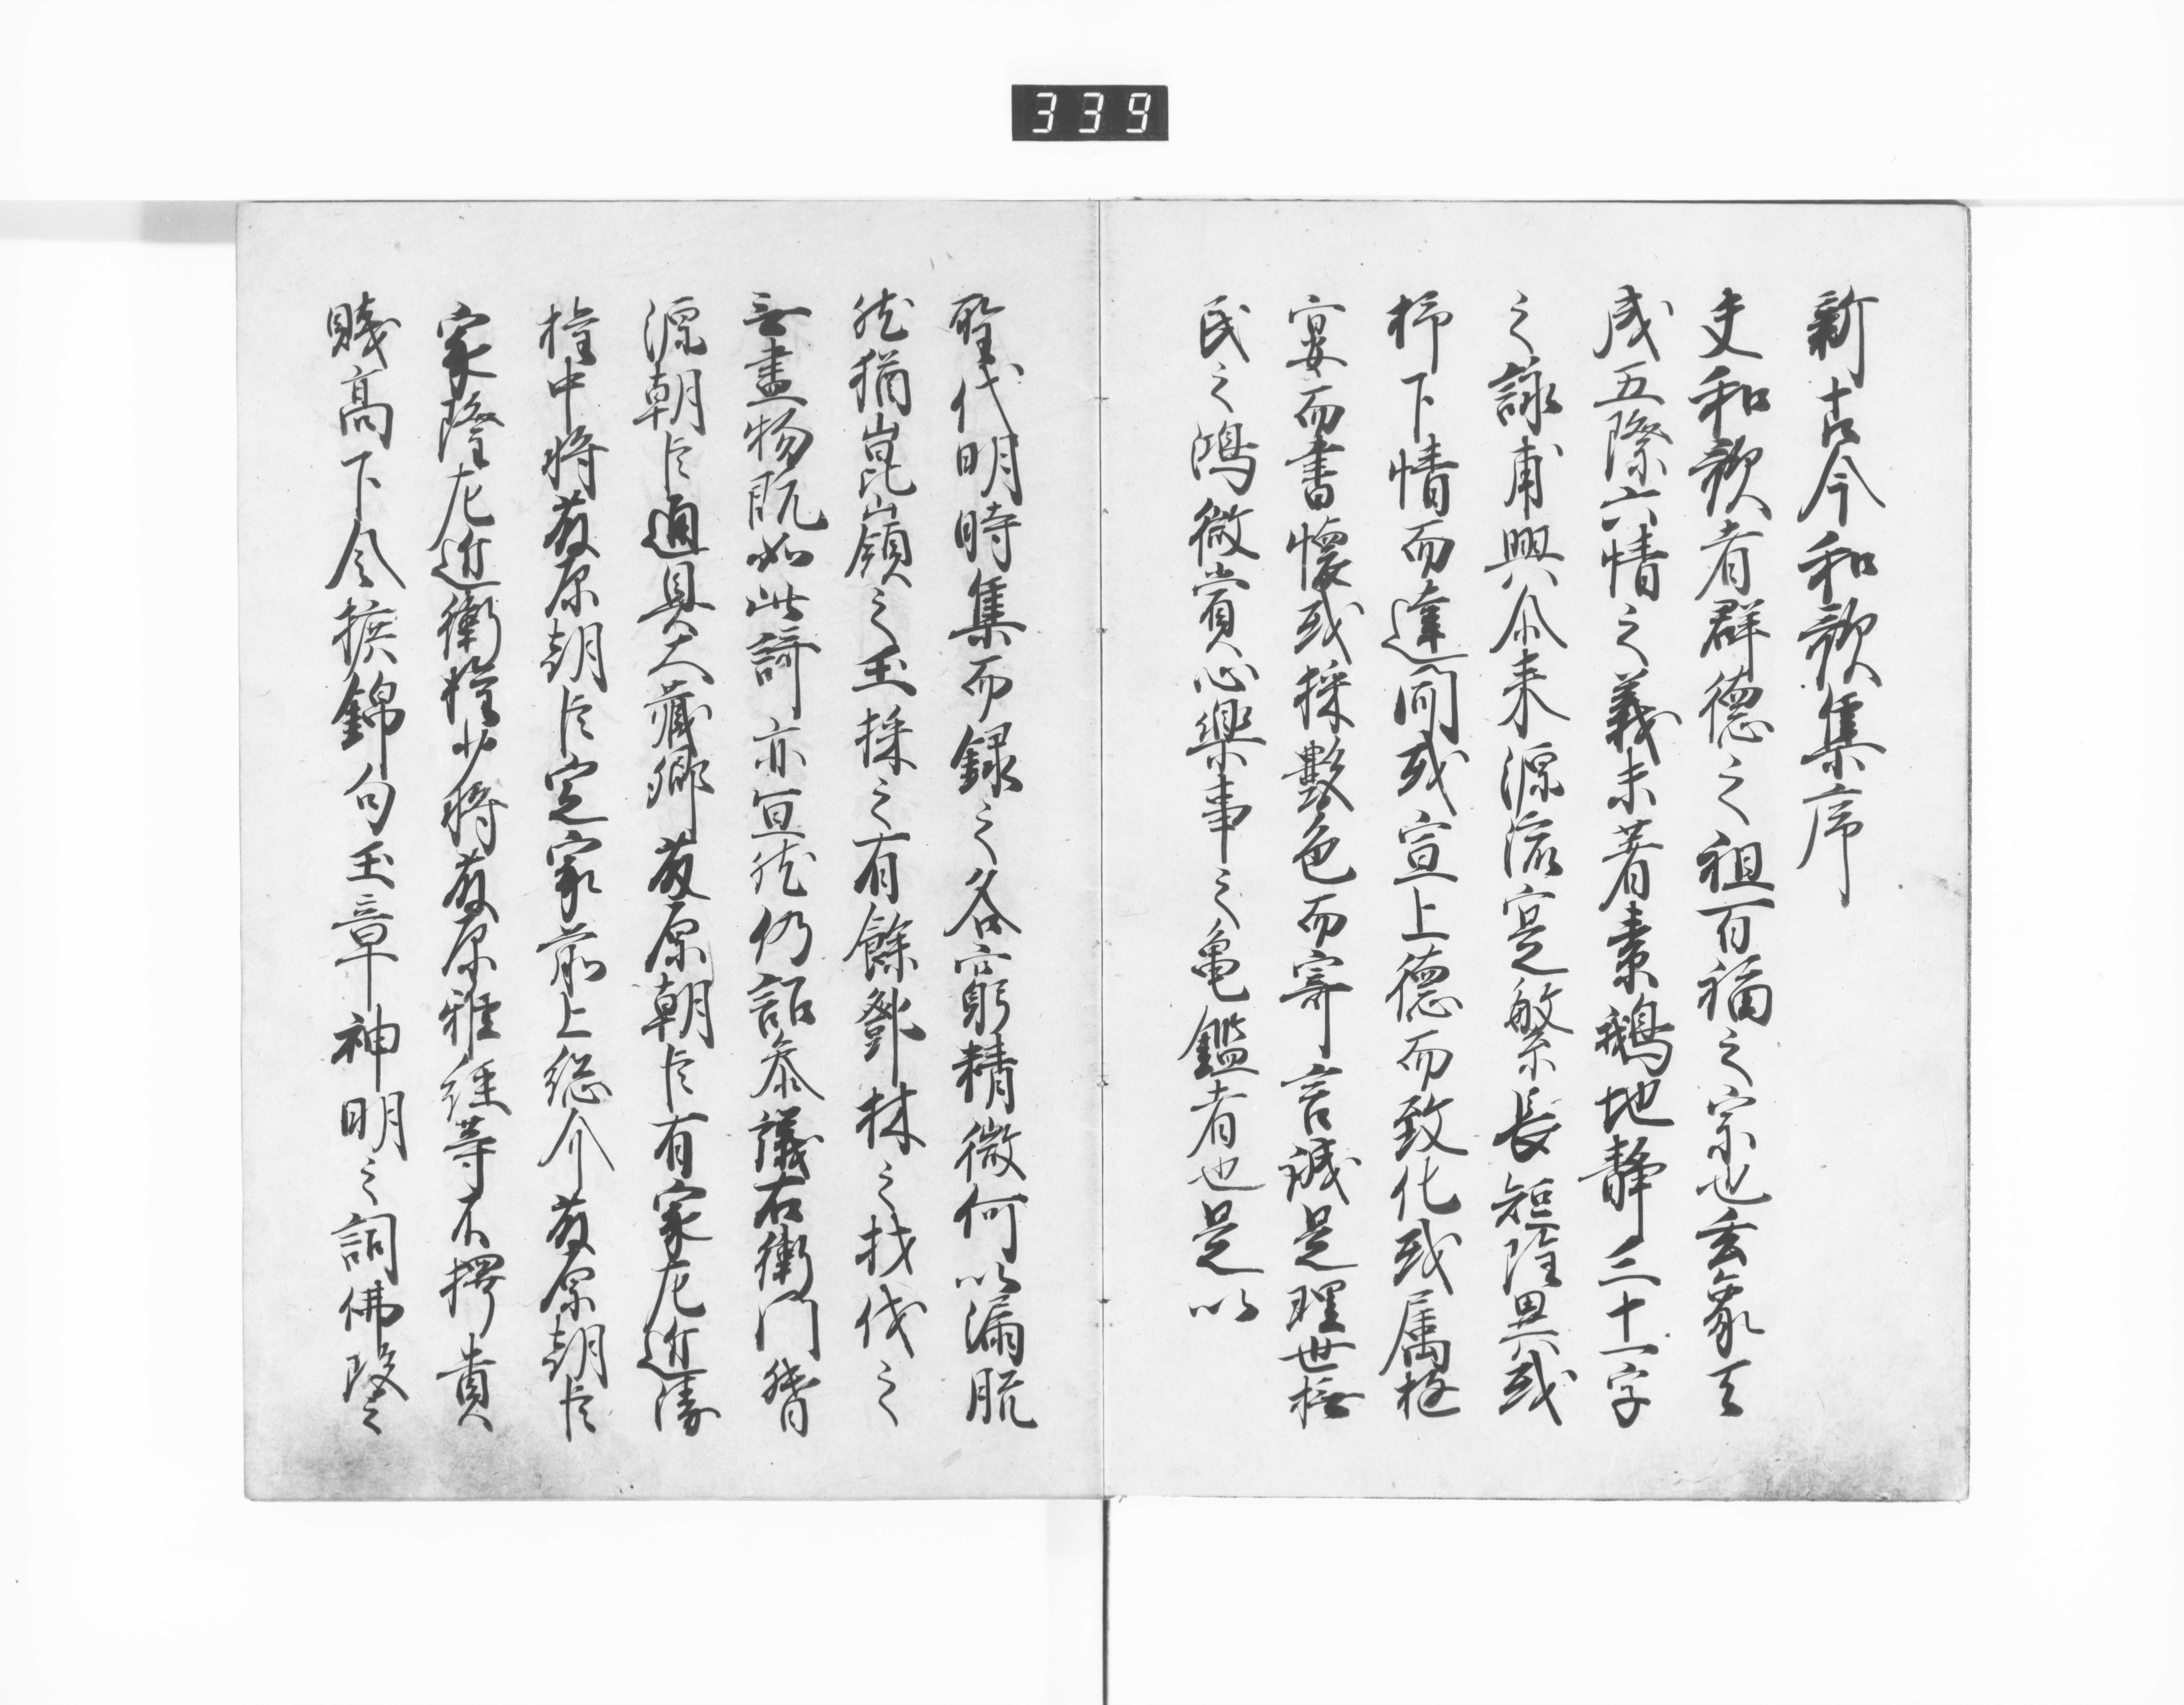 339
新古今和歌集序
夫和歌者群徳之祖百福之宗也玄象天
成五際六情之義未著素鵝地静三十一字
之詠甫興尒来源流寔繁長短雖異或
抒下情而達聞或宣上徳而致化或属遊
宴而書懐或採艶色而寄言誠是理世撫
民之鴻徽賞心楽事之亀鑑者也是以
聖代明時集而録之各窮精微何以漏脱
然猶崑嶺之玉採之有餘鄧林之材伐之
無尽物既如此謌亦宜然仍詔参議右衛門督
源朝臣通具大蔵卿藤原朝臣有家左近衛
権中将藤原朝臣定家前上総介藤原朝臣
家隆左近衛権少将藤原雅経等不択貴
賤高下令摭錦句玉章神明之詞佛陀之